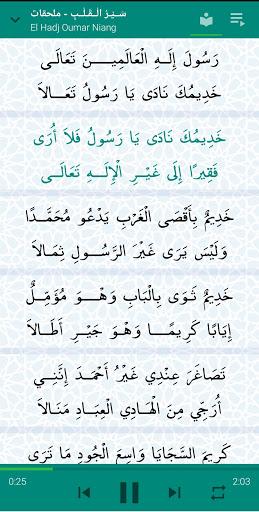 سَيْرُ الْقَلْبِ - ملحقات
El Hadj Oumar Niang
رَسُولَ إِلَهِ الْعَالَمِينَ تَعَالَى
خَدِيمُكَ نَادَى يَا رَسُولُ تَعَالاَ
خَدِيمُكَ نَادَى يَا رَسُولُ فَلاَ أُرَى
فَقِيرًا إِلَى غَيْرِ الْإِلَهِ تَعَالَى
خَدِيمٌ بِأَقْصَى الْغَرْبِ يَدْعُو مُحَمَّدًا
وَلَيْسَ يَرَى غَيْرَ الرَّسُولِ ثِمَالاَ
خَدِيمٌ ثَوَى بِالْبَابِ وَهْوَ مُؤَمِّلٌ
إِيَابًا كَرِيمًا وَهْوَ جَيْرِ أَطَالاَ
تَصَاغَرَ عِنْدِي غَيْرُ أَحْمَدَ إِنَّنِي
أُرَجِّي مِنَ الْهَادِي الْعِبَادِ مَنَالاَ
كَرِيمَ السَّجَايَا وَاسِعَ الْجُودِ مَا تَرَى
0:25
2:03